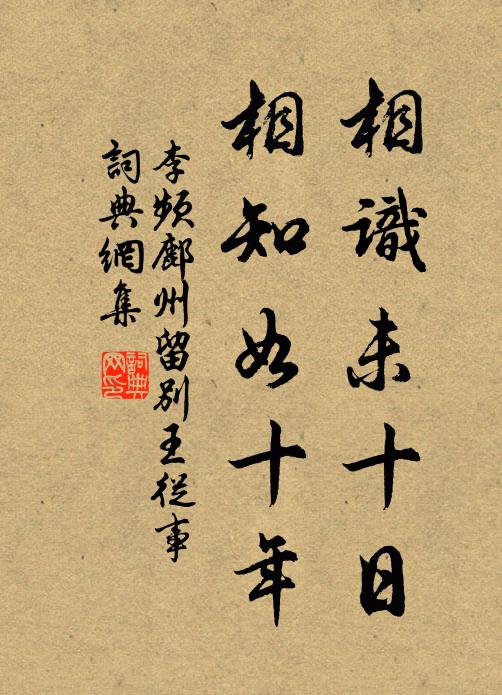 相識未十日
相知如十年
李頻鄜州留別王從事
詞典網集
詞典网印